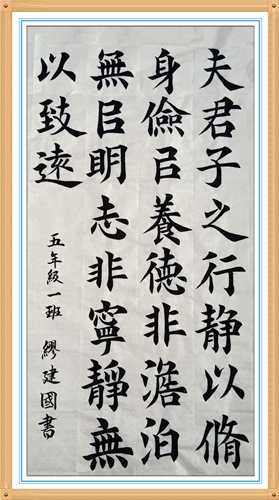 夫君子之行静以脩
身儉㠯養德非澹泊
無㠯明志非寧靜無
以致遠
五年級一班 繆建國書